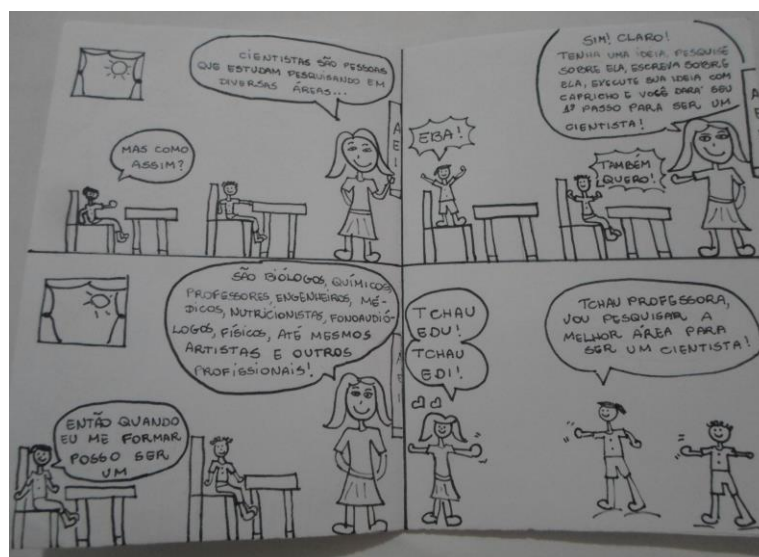 CIENTISTAS SÃO PESSOAS
QUE ESTUDAM PESQUISANDO EM
DIVERSAS ÁREAS...
MAS COMO
ASSIM?
A
E
I
SÃO BIÓLOGOS, QUÍMICOS,
PROFESSORES, ENGENHEIROS, MÉ-
DICOS, NUTRICIONISTAS, FONOAUDIÓ-
LOGOS, FÍSICOS, ATÉ MESMOS
ARTISTAS E OUTROS
PROFISSIONAIS!
ENTÃO QUANDO
EU ME FORMAR
POSSO SER
UM
SIM! CLARO!
TENHA UMA IDEIA, PESQUISE
SOBRE ELA, ESCREVA SOBRE
ELA, EXECUTE SUA IDEIA COM
CAPRICHO E VOCÊ DARÁ SEU
1º PASSO PARA SER UM
CIENTISTA!
EBA!
TAMBÉM
QUERO!
A
E
TCHAU
EDU!
TCHAU
EDI!
TCHAU PROFESSORA,
VOU PESQUISAR A
MELHOR ÁREA PARA
SER UM CIENTISTA!